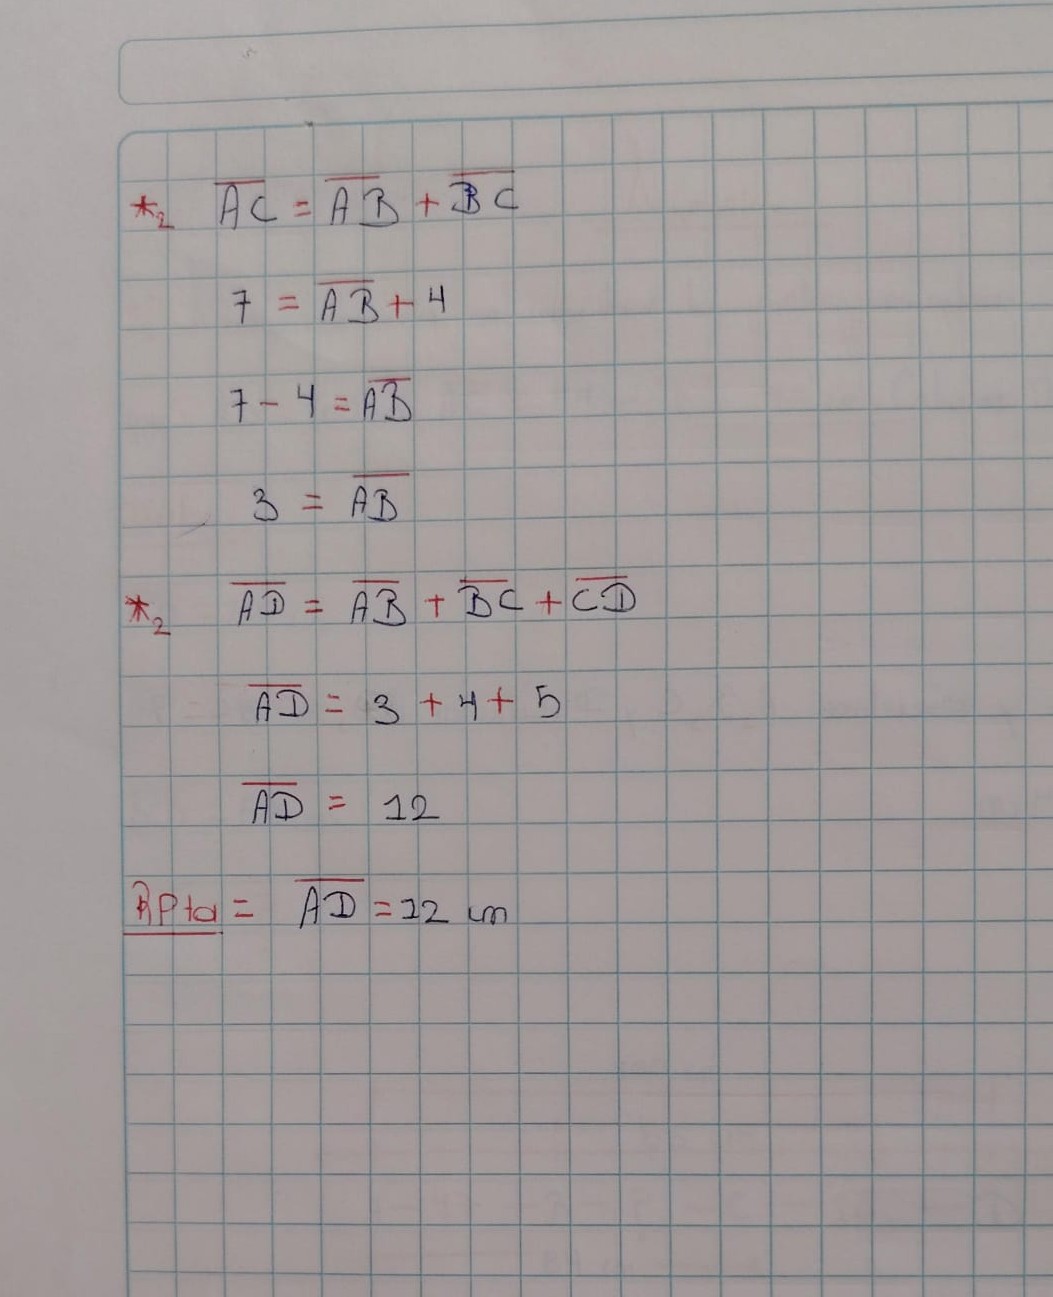 *₂ AC = AB + BC
7 = AB + 4
7 - 4 = AB
3 = AB
*₂ AD = AB + BC + CD
AD = 3 + 4 + 5
AD = 12
Rpta = AD = 12 cm